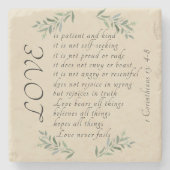 LOVE
is patient and kind
it is not self-seeking
it is not proud or rude
it does not envy or boast
it is not angry or resentful
does not rejoice in wrong
but rejoices in truth
Love bears all things
believes things
hopes all things
Love never fails
1 Corinthians 13: 4-8